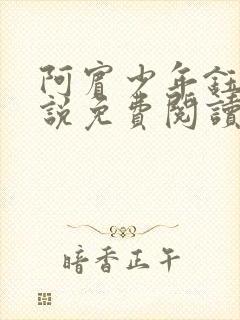 阿賓少年鈺
說免費閱讀
暗香正午